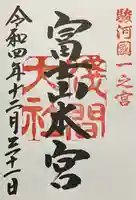 駿河國一之宮
富士山本宮
浅間大社
令和四年十二月三十一日